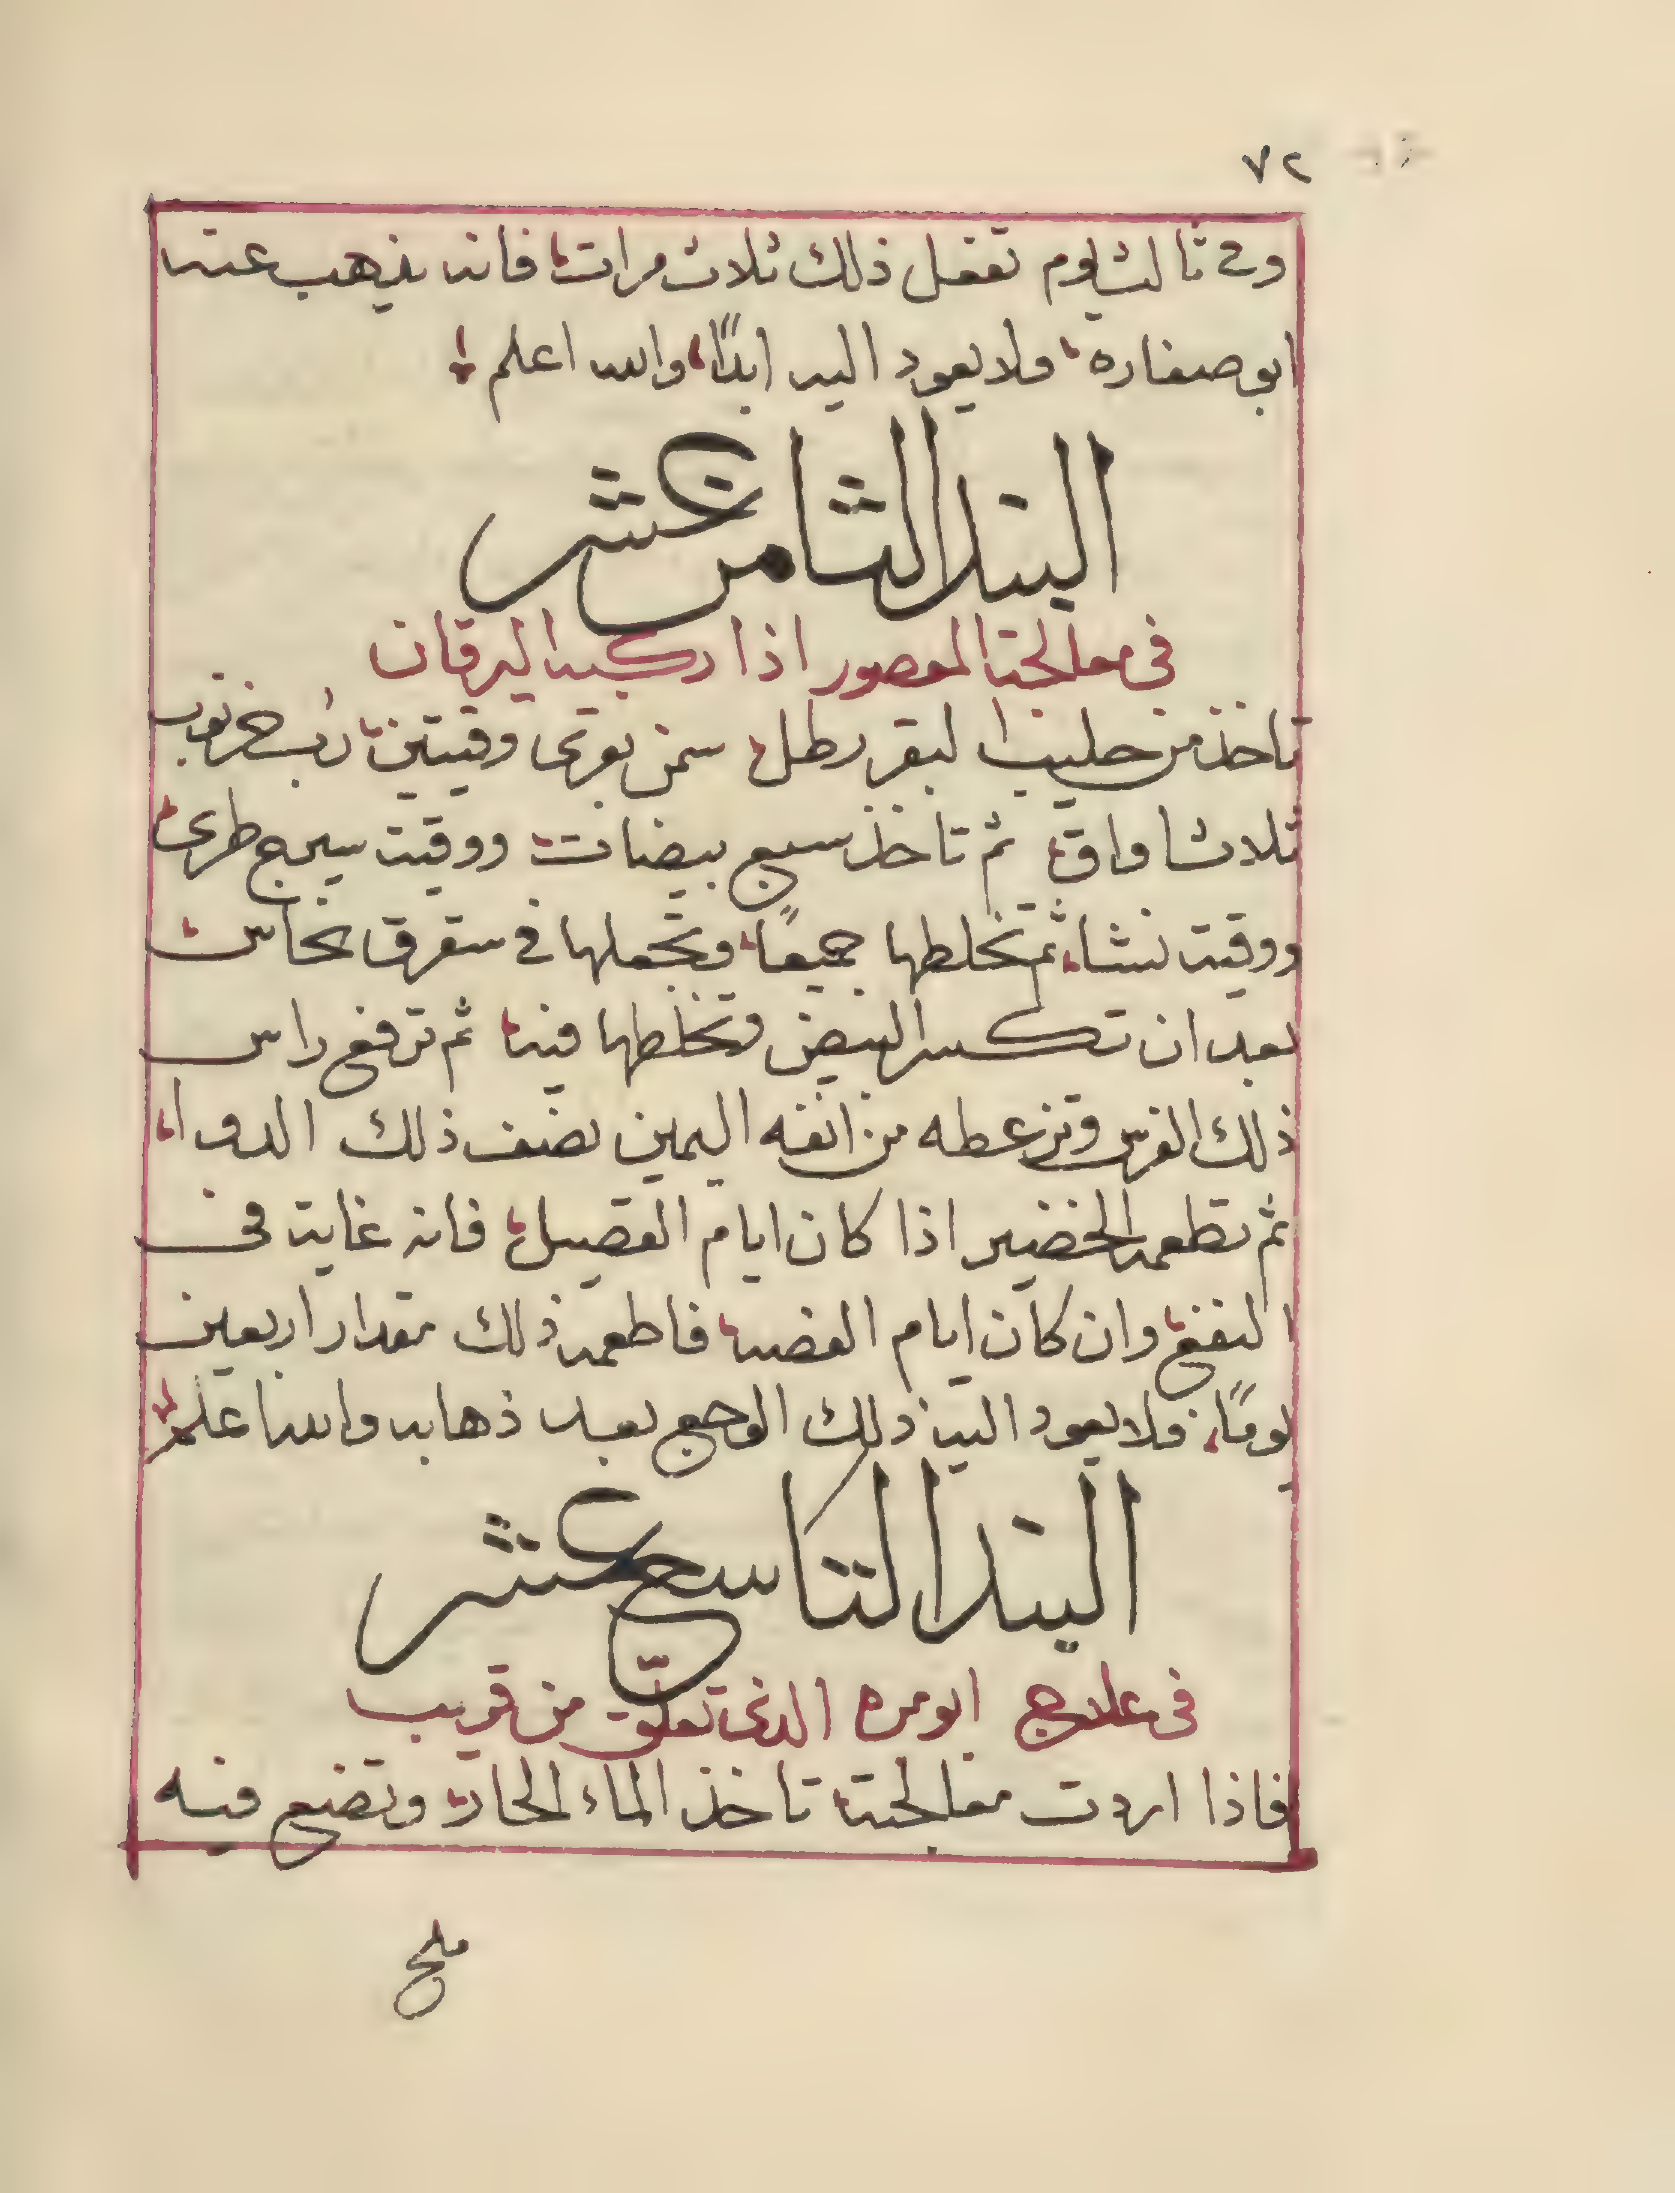 ٧٢
وفي ثالث يوم تفعل ذلك ثلاث مرات فانه يذهب عنه
ابو صفاره ولا يعود اليه ابدًا والله اعلم
البند الثامن عشر
في معالجة الممصور اذا ركبه اليرقان
تاخذ من حليب البقر رطل سمن بقري وقيتين رُب خرنوب
ثلاث اواق ثم تاخذ سبع بيضات ووقية سيرج طري
ووقية نشا ثم تخلطها جميعًا وتجعلها في ستقرق نحاس
بعد ان تكسر البيض وتخلطها فيه ثم ترفع راس
ذلك الفرس وتزعطه من انفه اليمين نصف ذلك الدوا
ثم تطعمه الخضير اذا كان ايام القصيل فانه غاية في
النفع وان كان ايام الفصه فاطعمه ذلك مقدار اربعين
يومًا ولا يعود اليه ذلك الوجع بعد ذهابه والله اعلم
البند التاسع عشر
في علاج ابو مره الذي تعلّق من قريب
فاذا اردت معالجته تاخذ الماء الحار وتضع فيه
ملح